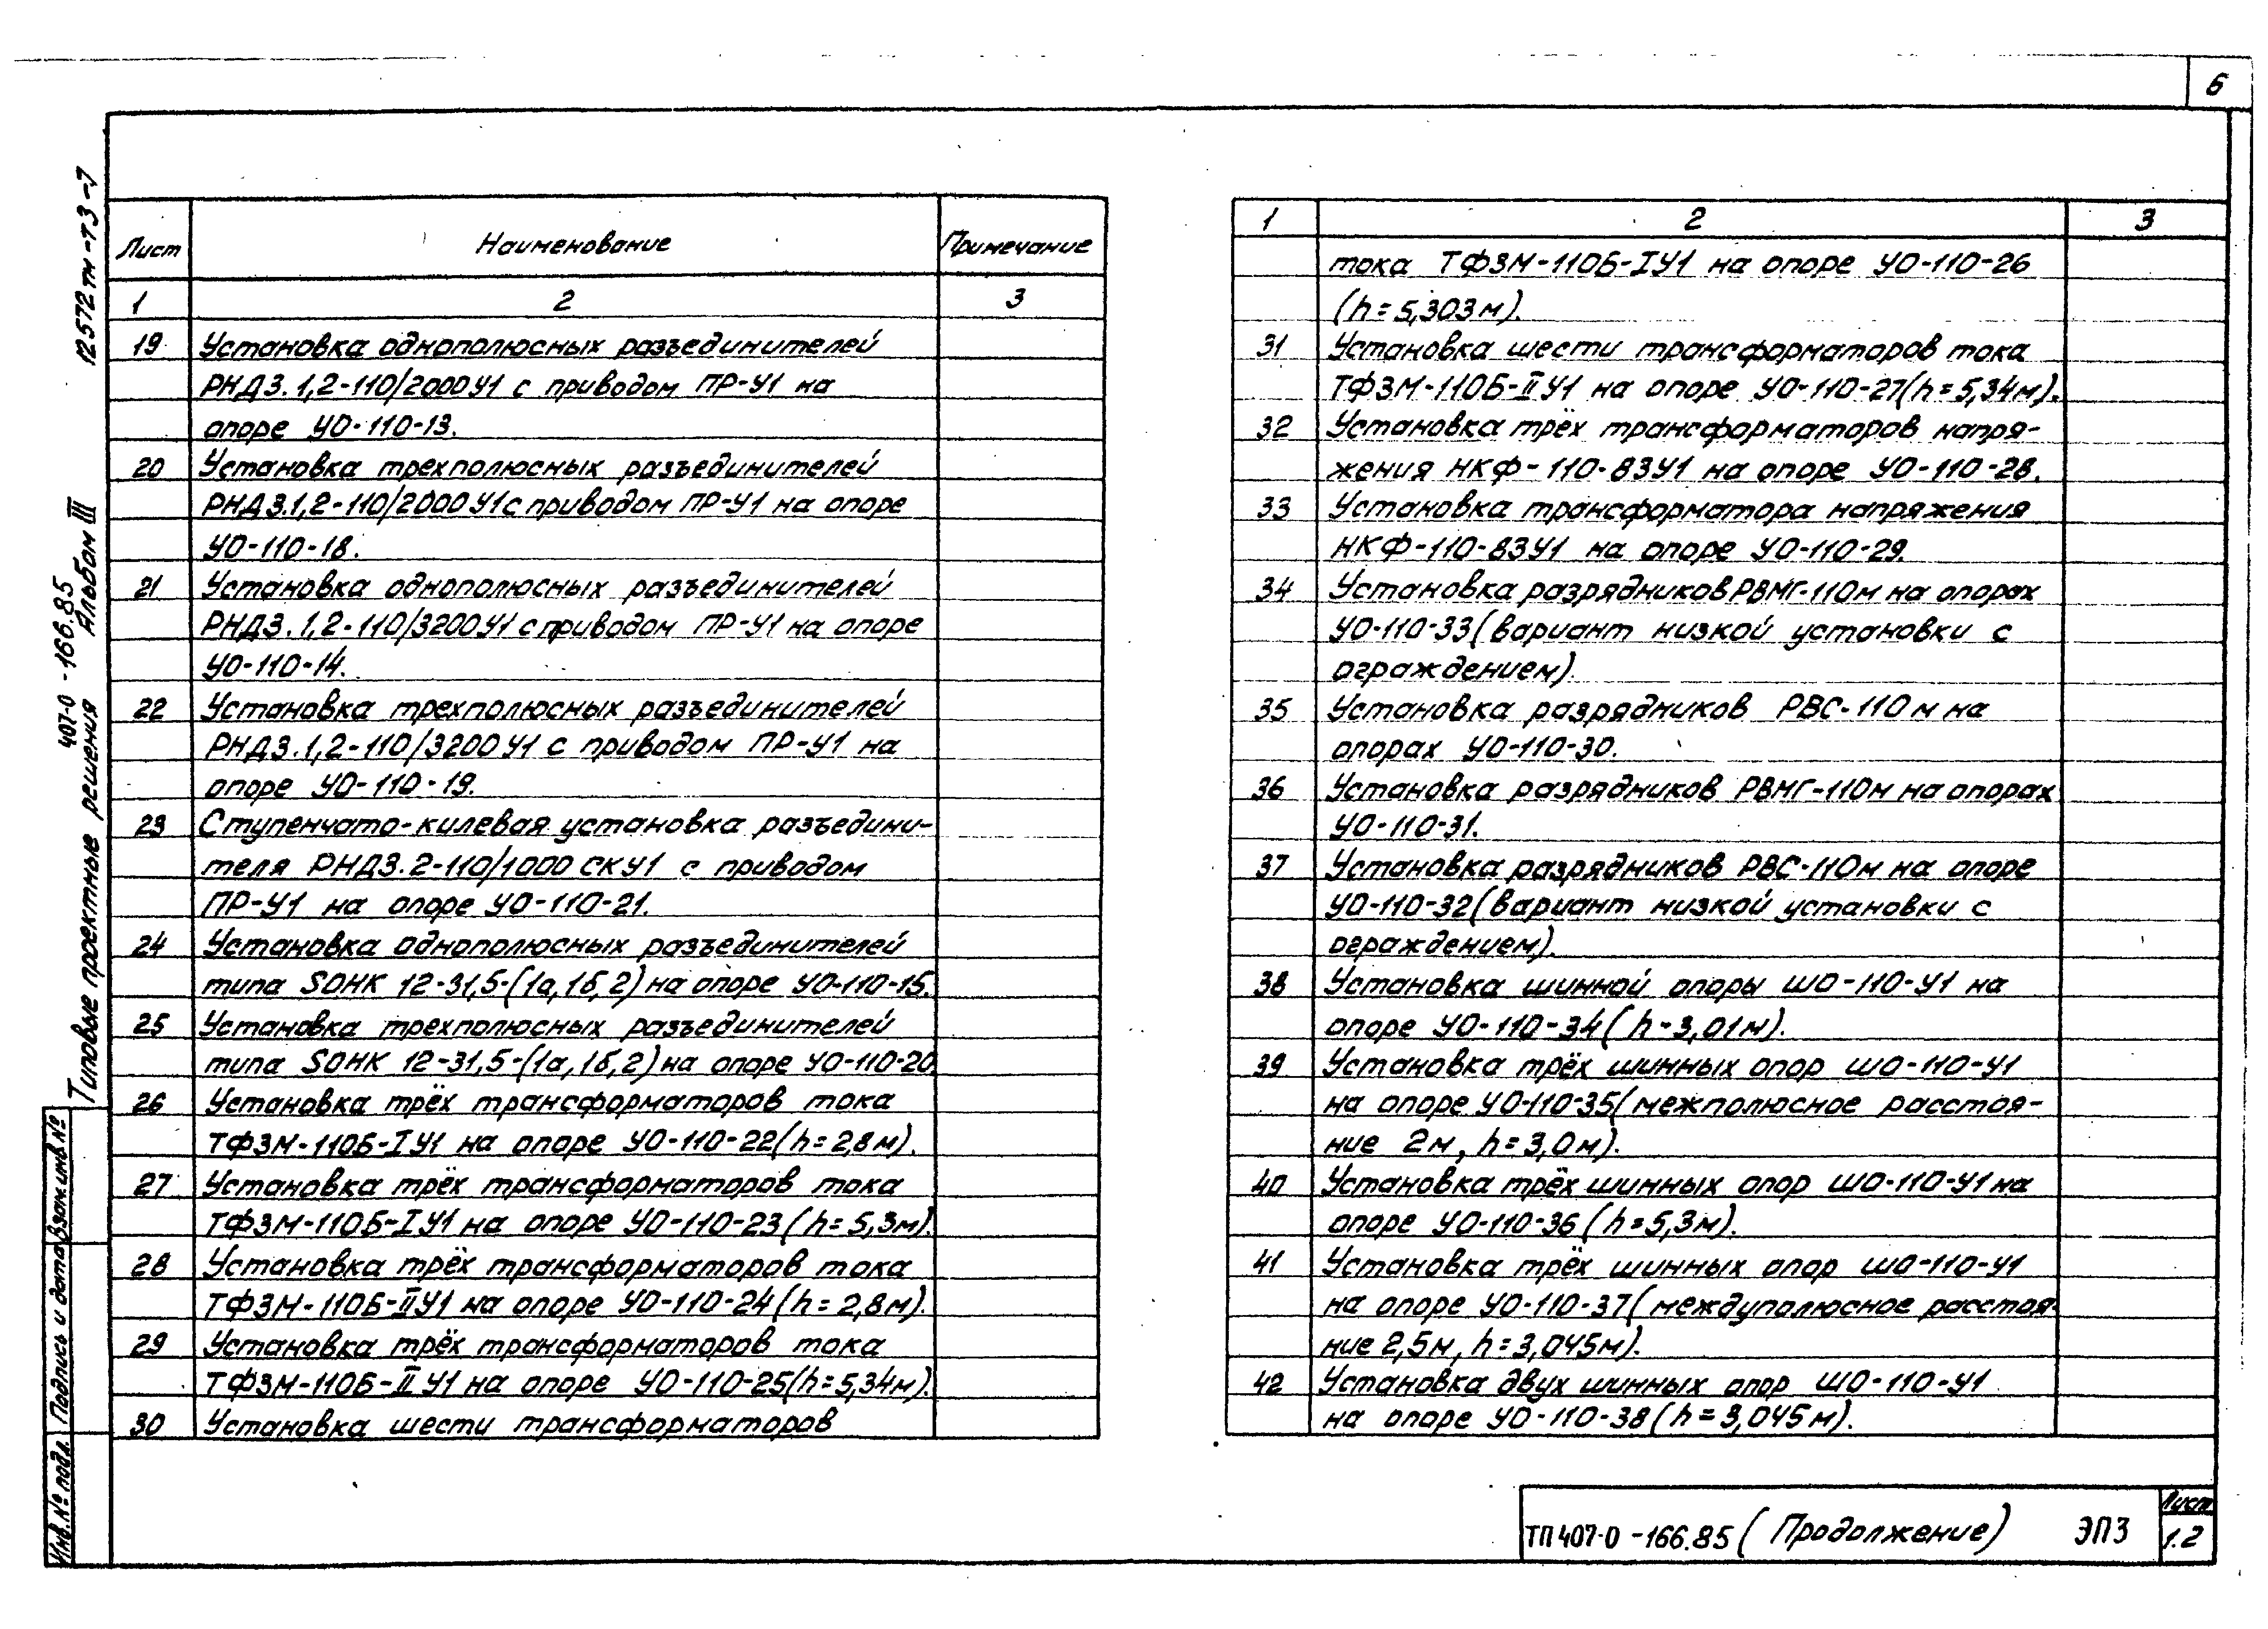 6
12572тм-т3-7
Типовые проектные решения
407-0-166.85
Альбом III
Взам.инв.№
Подпись и дата
Инв.№ подл.
Лист Наименование Примечание
1 2 3
19 Установка однополюсных разъединителей
РНДЗ.1,2-110/2000У1 с приводом ПР-У1 на
опоре УО-110-13.
20 Установка трехполюсных разъединителей
РНДЗ.1,2-110/2000У1 с приводом ПР-У1 на опоре
УО-110-18.
21 Установка однополюсных разъединителей
РНДЗ.1,2-110/3200У1 с приводом ПР-У1 на опоре
УО-110-14.
22 Установка трехполюсных разъединителей
РНДЗ.1,2-110/3200У1 с приводом ПР-У1 на
опоре УО-110-19.
23 Ступенчато-килевая установка разъедини-
теля РНДЗ.2-110/1000 СКУ1 с приводом
ПР-У1 на опоре УО-110-21.
24 Установка однополюсных разъединителей
типа SОНК 12-31,5-(1а,1б,2) на опоре УО-110-15.
25 Установка трехполюсных разъединителей
типа SОНК 12-31,5-(1а,1б,2) на опоре УО-110-20.
26 Установка трёх трансформаторов тока
ТФЗМ-110Б-IУ1 на опоре УО-110-22(h=2,8м).
27 Установка трёх трансформаторов тока
ТФЗМ-110Б-IУ1 на опоре УО-110-23(h=5,3м).
28 Установка трёх трансформаторов тока
ТФЗМ-110Б-IIУ1 на опоре УО-110-24(h=2,8м).
29 Установка трёх трансформаторов тока
ТФЗМ-110Б-IIУ1 на опоре УО-110-25(h=5,34м).
30 Установка шести трансформаторов
1 2 3
тока ТФЗМ-110Б-IУ1 на опоре УО-110-26
(h=5,303м).
31 Установка шести трансформаторов тока
ТФЗМ-110Б-IIУ1 на опоре УО-110-27(h=5,34м).
32 Установка трёх трансформаторов напря-
жения НКФ-110-83У1 на опоре УО-110-28.
33 Установка трансформатора напряжения
НКФ-110-83У1 на опоре УО-110-29.
34 Установка разрядников РВМГ-110м на опорах
УО-110-33(вариант низкой установки с
ограждением).
35 Установка разрядников РВС-110м на
опорах УО-110-30.
36 Установка разрядников РВМГ-110м на опорах
УО-110-31.
37 Установка разрядников РВС-110м на опоре
УО-110-32(вариант низкой установки с
ограждением).
38 Установка шинной опоры ШО-110-У1 на
опоре УО-110-34(h-3,01м).
39 Установка трёх шинных опор ШО-110-У1
на опоре УО-110-35(межполюсное расстоя-
ние 2м, h=3,0м).
40 Установка трёх шинных опор ШО-110-У1 на
опоре УО-110-36(h=5,3м).
41 Установка трёх шинных опор ШО-110-У1
на опоре УО-110-37(междуполюсное расстоя-
ние 2,5м, h=3,045м).
42 Установка двух шинных опор ШО-110-У1
на опоре УО-110-38(h=3,045м).
ТП 407-0-166.85 (Продолжение) ЭП3
Лист
1.2